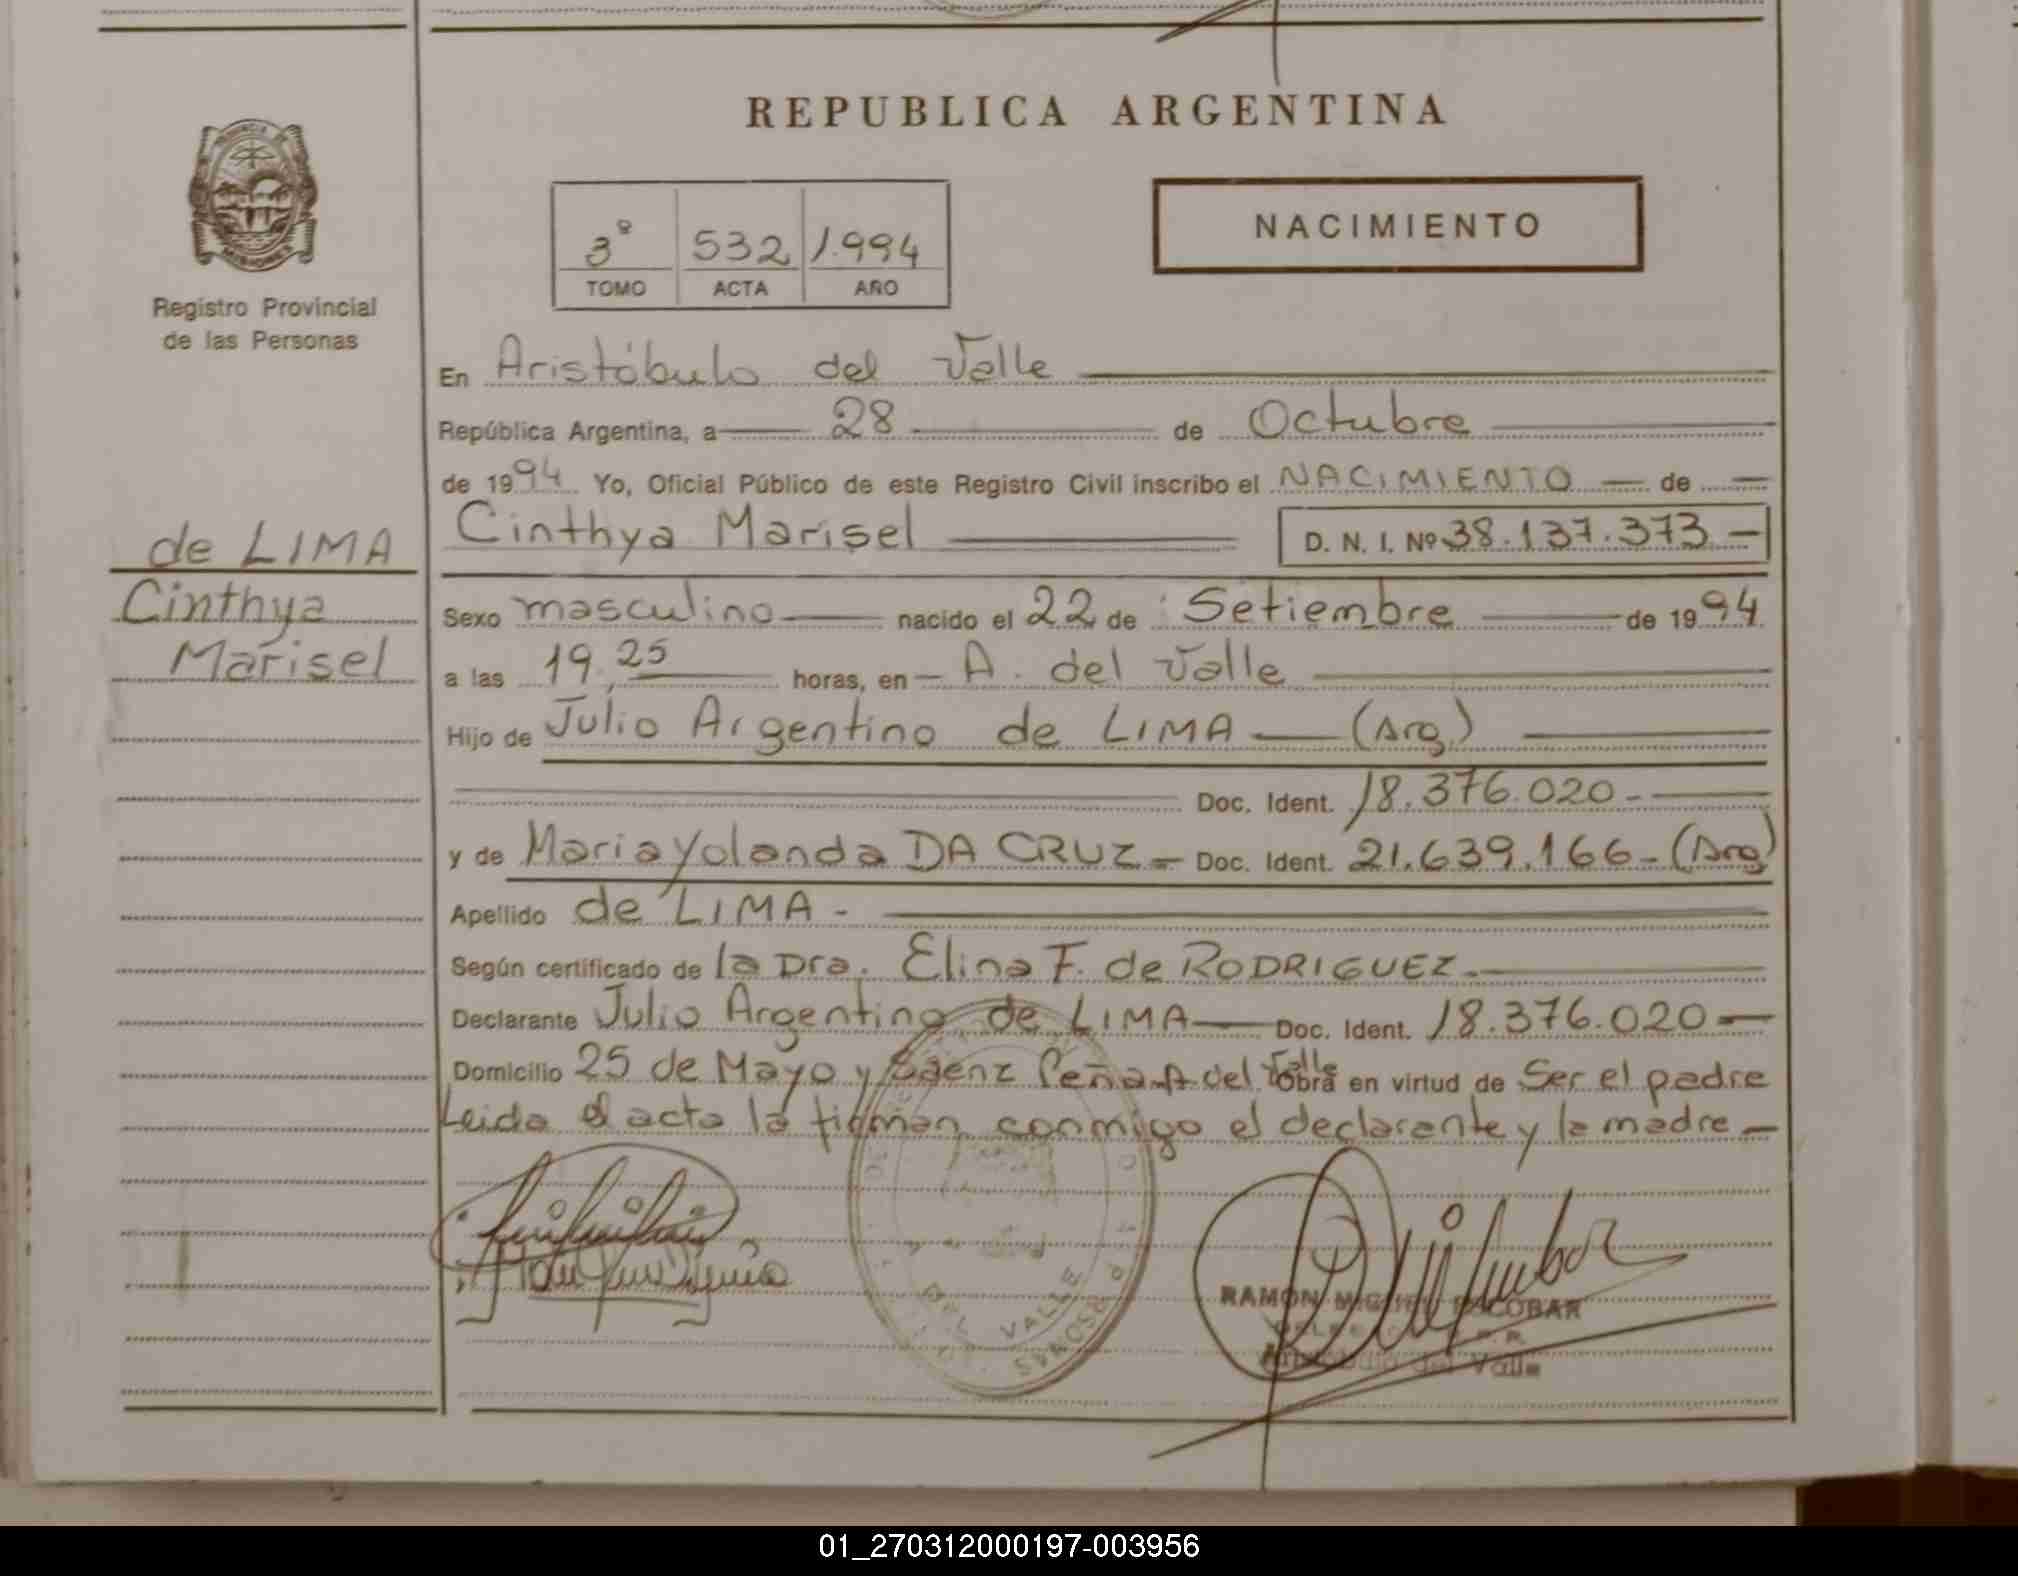 REPUBLICA ARGENTINA
MISIONES
Registro Provincial
de las Personas
3º 532 1.994
TOMO ACTA AÑO
NACIMIENTO
En Aristóbulo del Valle
República Argentina, a 28 de Octubre
de 1994 Yo, Oficial Público de este Registro Civil inscribo el NACIMIENTO — de —
de LIMA
Cinthya
Marisel
Cinthya Marisel D. N. I. Nº 38.137.373 —
Sexo masculino nacido el 22 de Setiembre de 1994
a las 19,25 horas, en — A. del Valle
Hijo de Julio Argentino de LIMA — (Arg.)
Doc. Ident. 18.376.020 -
y de Maria Yolanda DA CRUZ = Doc. Ident. 21.639.166 - (Arg)
Apellido de LIMA -
Según certificado de la Dra. Elina F. de RODRIGUEZ.
Declarante Julio Argentino de LIMA — Doc. Ident. 18.376.020 =
Domicilio 25 de Mayo y Saenz Peña A. del Valle obra en virtud de Ser el padre
Leida el acta la firman conmigo el declarante y la madre —
DEL VALLE
RAMON MIGUEL ESCOBAR
Aristobulo del Valle
01_270312000197-003956